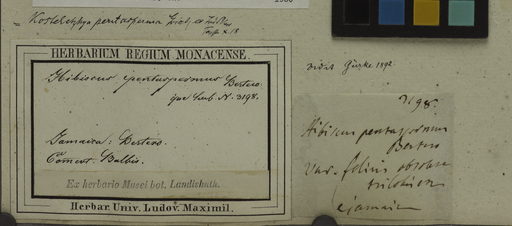 = Kosteletzkya pentasperma
HERBARIUM REGIUM MONACENSE.
Hibiscus pentaspermus Bertero.
que sub N. 3198.
Jamaica: Bertero.
Comm. Balbis.
Ex herbario Musei bot. Landishuth.
Herbar. Univ. Ludov. Maximil.
vidit Gürke 1892
3198.
Hibiscus pentaspermus
Bertero
Var. foliis obsolete
trilobis
e jamaica